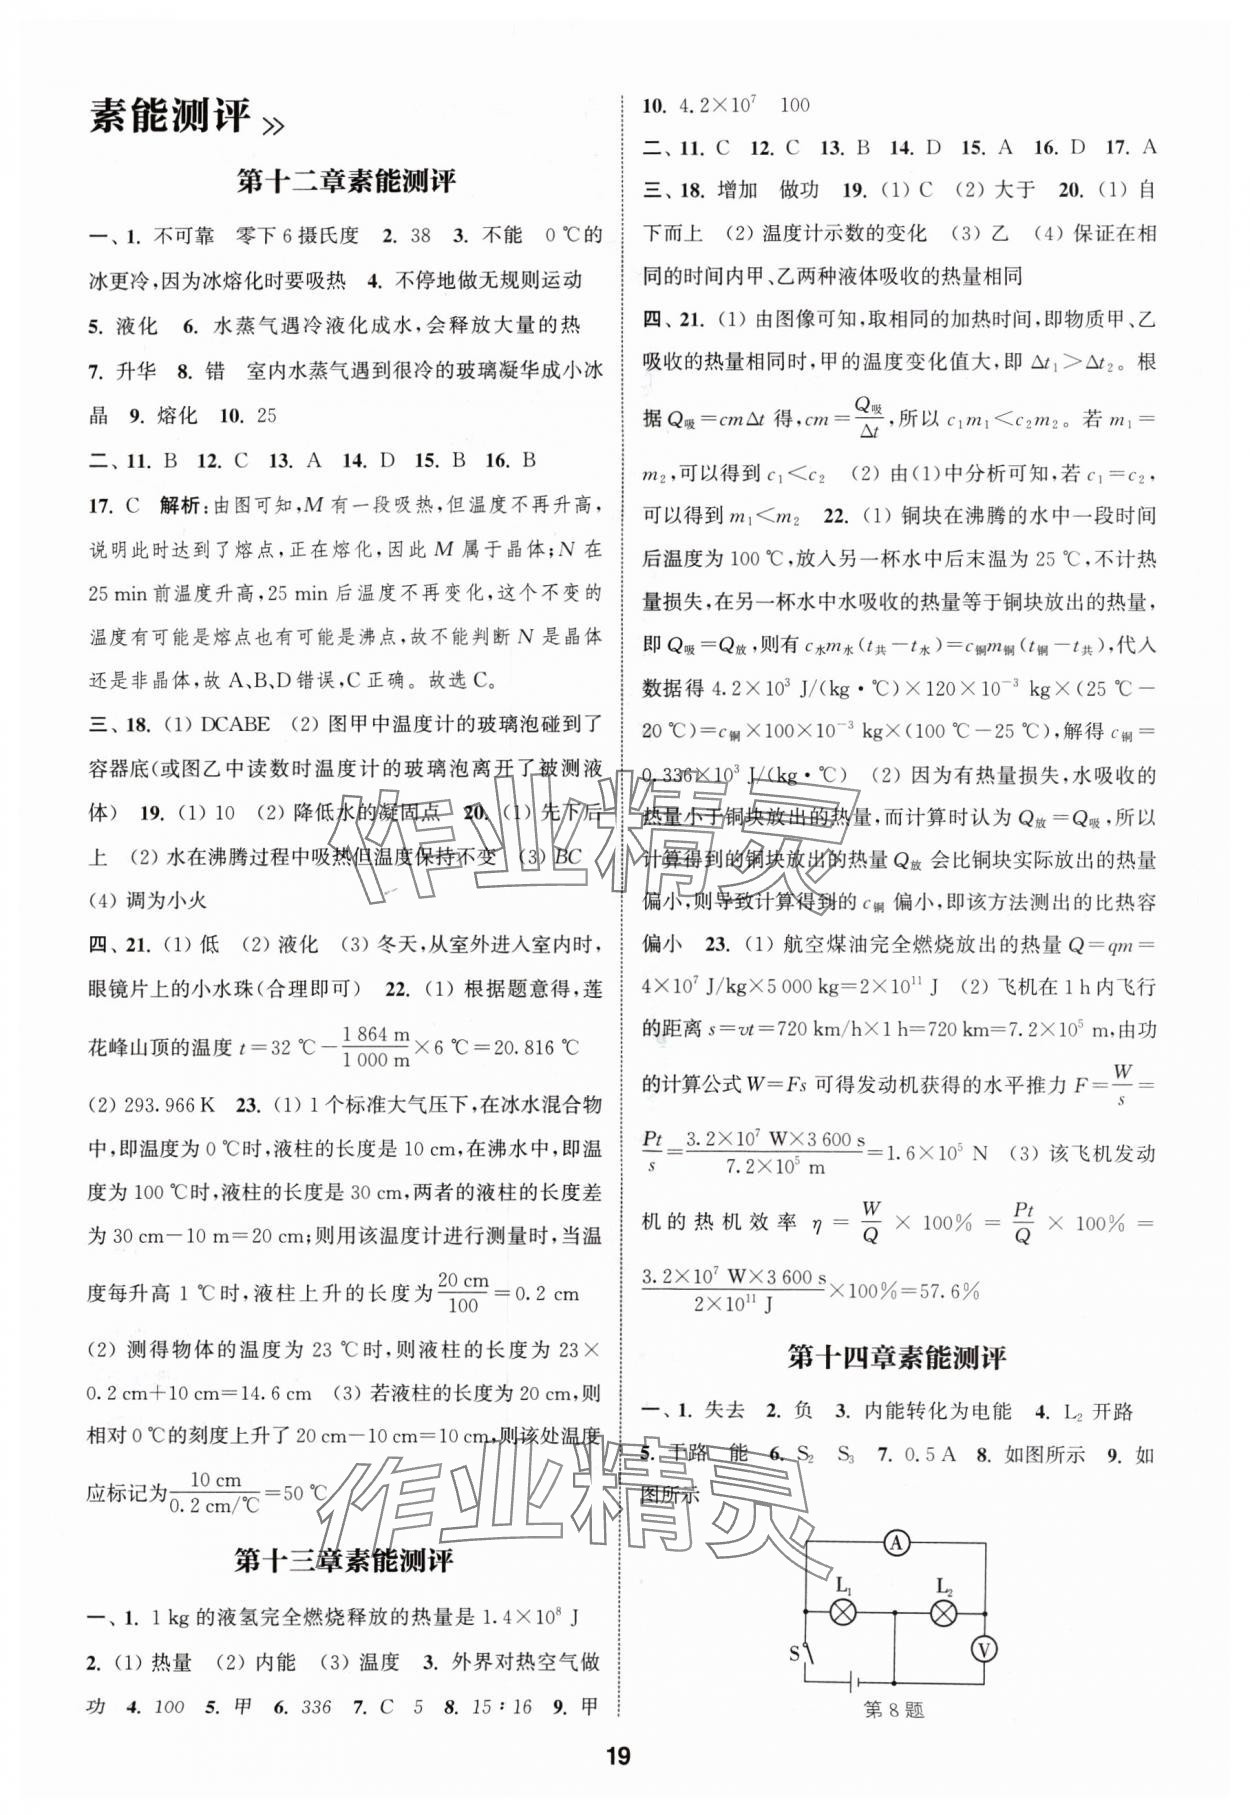 素能测评 >>
第十二章素能测评
一、1. 不可靠　零下6摄氏度　2. 38　3. 不能　0 ℃的
冰更冷,因为冰熔化时要吸热　4. 不停地做无规则运动
5. 液化　6. 水蒸气遇冷液化成水,会释放大量的热
7. 升华　8. 错　室内水蒸气遇到很冷的玻璃凝华成小冰
晶　9. 熔化　10. 25
二、11. B　12. C　13. A　14. D　15. B　16. B
17. C　解析:由图可知,M 有一段吸热,但温度不再升高,
说明此时达到了熔点,正在熔化,因此 M 属于晶体;N 在
25 min 前温度升高,25 min 后温度不再变化,这个不变的
温度有可能是熔点也有可能是沸点,故不能判断 N 是晶体
还是非晶体,故 A、B、D 错误,C 正确。故选 C。
三、18. (1) DCABE　(2) 图甲中温度计的玻璃泡碰到了
容器底(或图乙中读数时温度计的玻璃泡离开了被测液
体)　19. (1) 10　(2) 降低水的凝固点　20. (1) 先下后
上　(2) 水在沸腾过程中吸热但温度保持不变　(3) BC
(4) 调为小火
四、21. (1) 低　(2) 液化　(3) 冬天,从室外进入室内时,
眼镜片上的小水珠(合理即可)　22. (1) 根据题意得,莲
花峰山顶的温度 t＝32 ℃－1 864 m/1 000 m×6 ℃＝20.816 ℃
(2) 293.966 K　23. (1) 1个标准大气压下,在冰水混合物
中,即温度为 0 ℃时,液柱的长度是 10 cm,在沸水中,即温
度为 100 ℃时,液柱的长度是 30 cm,两者的液柱的长度差
为 30 cm－10 m＝20 cm;则用该温度计进行测量时,当温
度每升高 1 ℃时,液柱上升的长度为20 cm/100＝0.2 cm
(2) 测得物体的温度为 23 ℃时,则液柱的长度为 23×
0.2 cm＋10 cm＝14.6 cm　(3) 若液柱的长度为 20 cm,则
相对 0 ℃的刻度上升了 20 cm－10 cm＝10 cm,则该处温度
应标记为10 cm/0.2 cm/℃＝50 ℃
第十三章素能测评
一、1. 1 kg 的液氢完全燃烧释放的热量是 1.4×10⁸ J
2. (1) 热量　(2) 内能　(3) 温度　3. 外界对热空气做
功　4. 100　5. 甲　6. 336　7. C　5　8. 15∶16　9. 甲
10. 4.2×10⁷　100
二、11. C　12. C　13. B　14. D　15. A　16. D　17. A
三、18. 增加　做功　19. (1) C　(2) 大于　20. (1) 自
下而上　(2) 温度计示数的变化　(3) 乙　(4) 保证在相
同的时间内甲、乙两种液体吸收的热量相同
四、21. (1) 由图像可知,取相同的加热时间,即物质甲、乙
吸收的热量相同时,甲的温度变化值大,即 Δt₁＞Δt₂。根
据 Q吸＝cmΔt 得,cm＝Q吸/Δt,所以 c₁m₁＜c₂m₂。若 m₁＝
m₂,可以得到 c₁＜c₂　(2) 由(1)中分析可知,若 c₁＝c₂,
可以得到 m₁＜m₂　22. (1) 铜块在沸腾的水中一段时间
后温度为 100 ℃,放入另一杯水中后末温为 25 ℃,不计热
量损失,在另一杯水中水吸收的热量等于铜块放出的热量,
即 Q吸＝Q放,则有 c水m水(t共－t水)＝c铜m铜(t铜－t共),代入
数据得 4.2×10³ J/(kg·℃)×120×10⁻³ kg×(25 ℃－
20 ℃)＝c铜×100×10⁻³ kg×(100 ℃－25 ℃),解得 c铜＝
0.336×10³ J/(kg·℃)　(2) 因为有热量损失,水吸收的
热量小于铜块放出的热量,而计算时认为 Q放＝Q吸,所以
计算得到的铜块放出的热量 Q放 会比铜块实际放出的热量
偏小,则导致计算得到的 c铜 偏小,即该方法测出的比热容
偏小　23. (1) 航空煤油完全燃烧放出的热量 Q＝qm＝
4×10⁷ J/kg×5 000 kg＝2×10¹¹ J　(2) 飞机在 1 h 内飞行
的距离 s＝vt＝720 km/h×1 h＝720 km＝7.2×10⁵ m,由功
的计算公式 W＝Fs 可得发动机获得的水平推力 F＝W/s＝
Pt/s＝3.2×10⁷ W×3 600 s/7.2×10⁵ m＝1.6×10⁵ N　(3) 该飞机发动
机的热机效率 η＝W/Q×100%＝Pt/Q×100%＝
3.2×10⁷ W×3 600 s/2×10¹¹ J×100%＝57.6%
第十四章素能测评
一、1. 失去　2. 负　3. 内能转化为电能　4. L₂ 开路
5. 干路　能　6. S₂　S₃　7. 0.5 A　8. 如图所示　9. 如
图所示
A
L₁
L₂
S
V
第 8 题
19
作业精灵
作业精灵